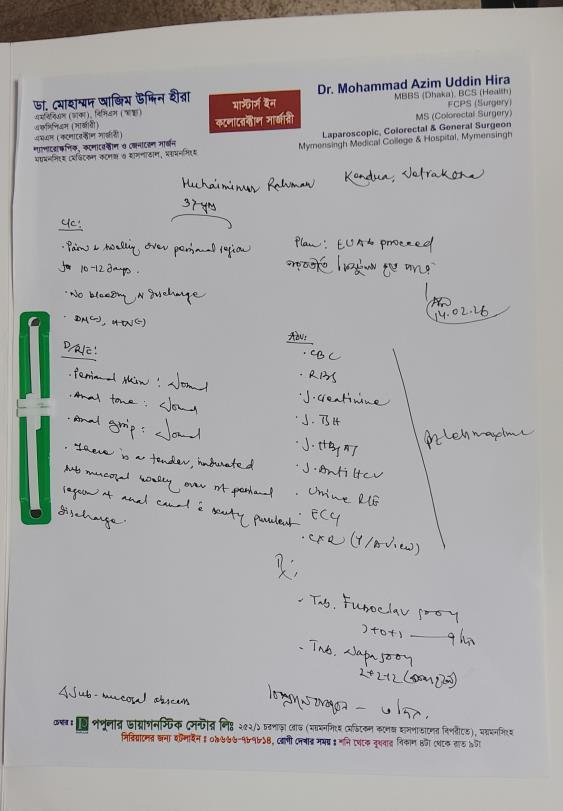 ডা. মোহাম্মদ আজিম উদ্দিন হীরা
এমবিবিএস (ঢাকা), বিসিএস (স্বাস্থ্য)
এফসিপিএস (সার্জারী)
এমএস (কলোরেক্টাল সার্জারী)
ল্যাপারোস্কপিক, কলোরেক্টাল ও জেনারেল সার্জন
ময়মনসিংহ মেডিকেল কলেজ ও হাসপাতাল, ময়মনসিংহ
মাস্টার্স ইন
কলোরেক্টাল সার্জারী
Dr. Mohammad Azim Uddin Hira
MBBS (Dhaka), BCS (Health)
FCPS (Surgery)
MS (Colorectal Surgery)
Laparoscopic, Colorectal & General Surgeon
Mymensingh Medical College & Hospital, Mymensingh
Rahman
Kendua, Netrakona
37 yrs
C/C:
Pain & swelling over perianal region
for 10-12 days.
No bleeding discharge
DM(-), HTN(-)
Plan: EUA & proceed
14.02.26
D/R/E:
Perianal skin : Normal
Anal tone : Normal
Anal grip : Normal
There is a tender, indurated
sub mucosal swelling over perianal
region & anal canal c scanty purulent
discharge.
Adv:
CBC
RBS
S. creatinine
S. TSH
S. HBsAg
S. Anti HCV
Urine R/E
ECG
CXR (P/A view)
Rx:
Tab. Furoclav 500mg
1+0+1
Tab. Napa 500mg
2+2+2
Sub-mucosal abscess
চেম্বার : পপুলার ডায়াগনস্টিক সেন্টার লিঃ ২৫২/১ চরপাড়া রোড (ময়মনসিংহ মেডিকেল কলেজ হাসপাতালের বিপরীতে), ময়মনসিংহ
সিরিয়ালের জন্য হটলাইন : ০৯৬৬৬-৭৮৭৮১৪, রোগী দেখার সময় : শনি থেকে বুধবার বিকাল ৪টা থেকে রাত ৯টা